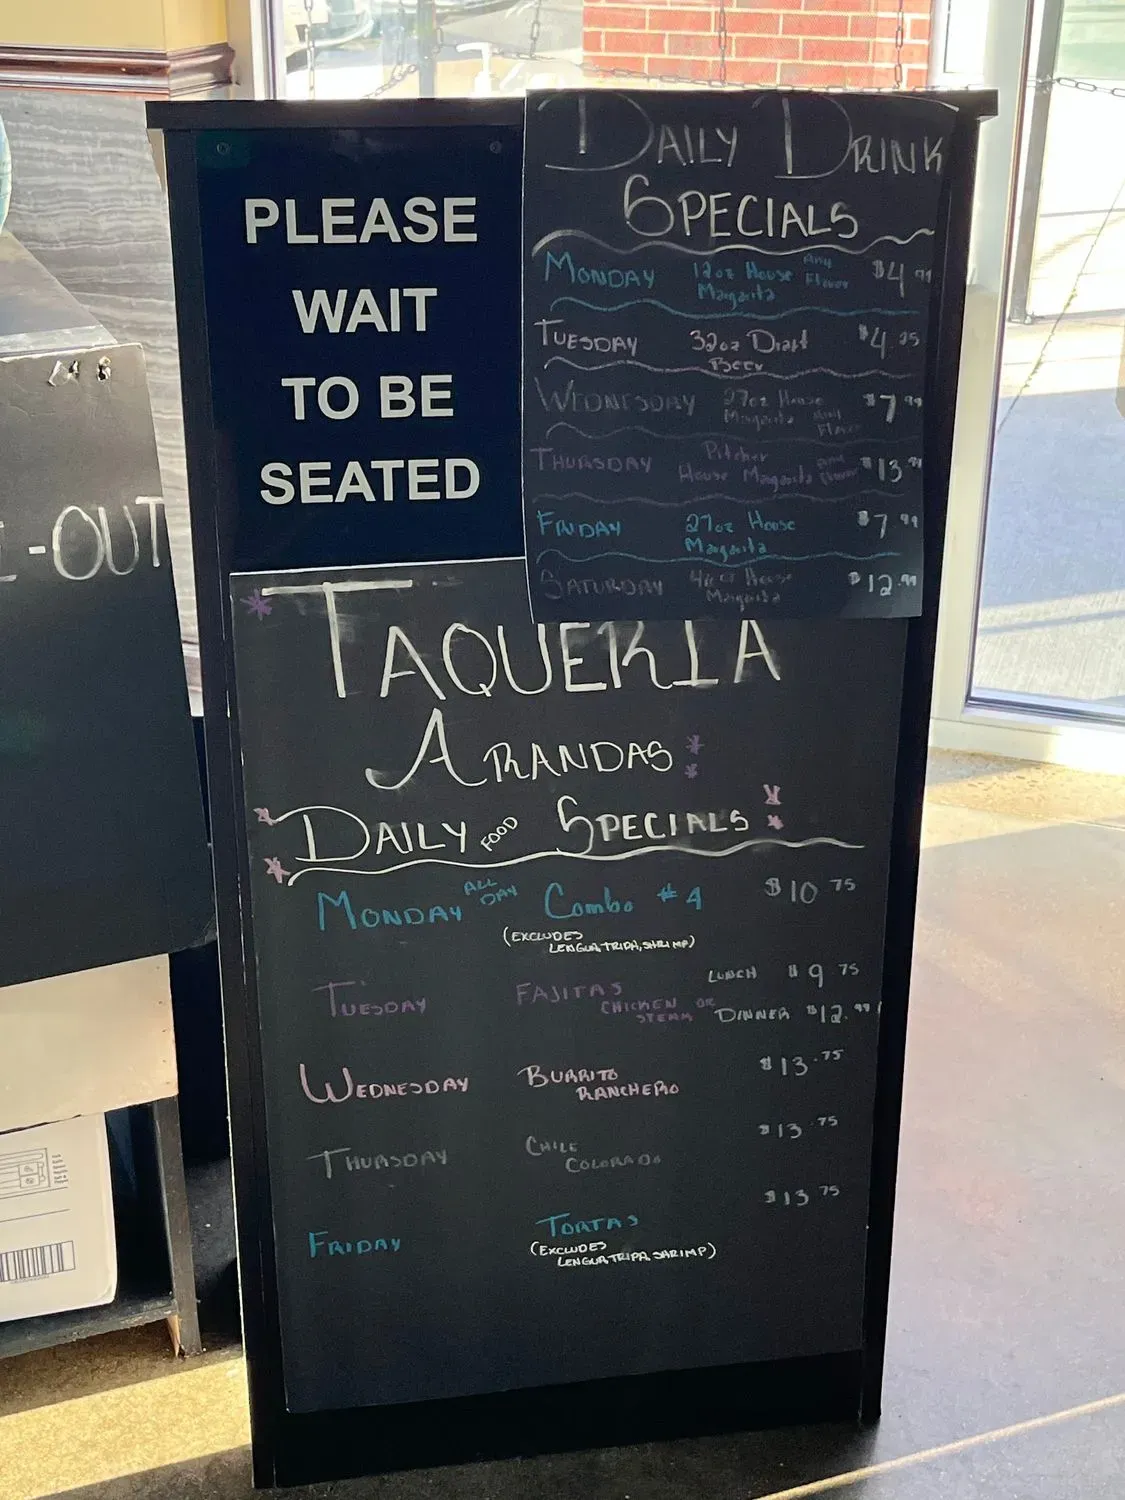 PLEASE
WAIT
TO BE
SEATED
DAILY DRINK
SPECIALS
MONDAY 12oz House Any Flavor $4.99
Margarita
TUESDAY 32oz Draft $4.25
Beer
WEDNESDAY 27oz House $7.99
Margarita Any Flavor
THURSDAY Pitcher $13.99
House Margarita Any Flavor
FRIDAY 27oz House $7.99
Margarita
SATURDAY 46oz House $12.99
Margarita
-OUT
TAQUERIA
ARANDAS
DAILY FOOD SPECIALS
MONDAY ALL DAY Combo #4 $10.75
(EXCLUDES
LENGUA, TRIPA, SHRIMP)
TUESDAY FAJITAS LUNCH $9.75
CHICKEN OR
STEAK DINNER $12.99
WEDNESDAY BURRITO $13.75
RANCHERO
THURSDAY CHILE $13.75
COLORADO
FRIDAY TORTAS $13.75
(EXCLUDES
LENGUA, TRIPA, SHRIMP)